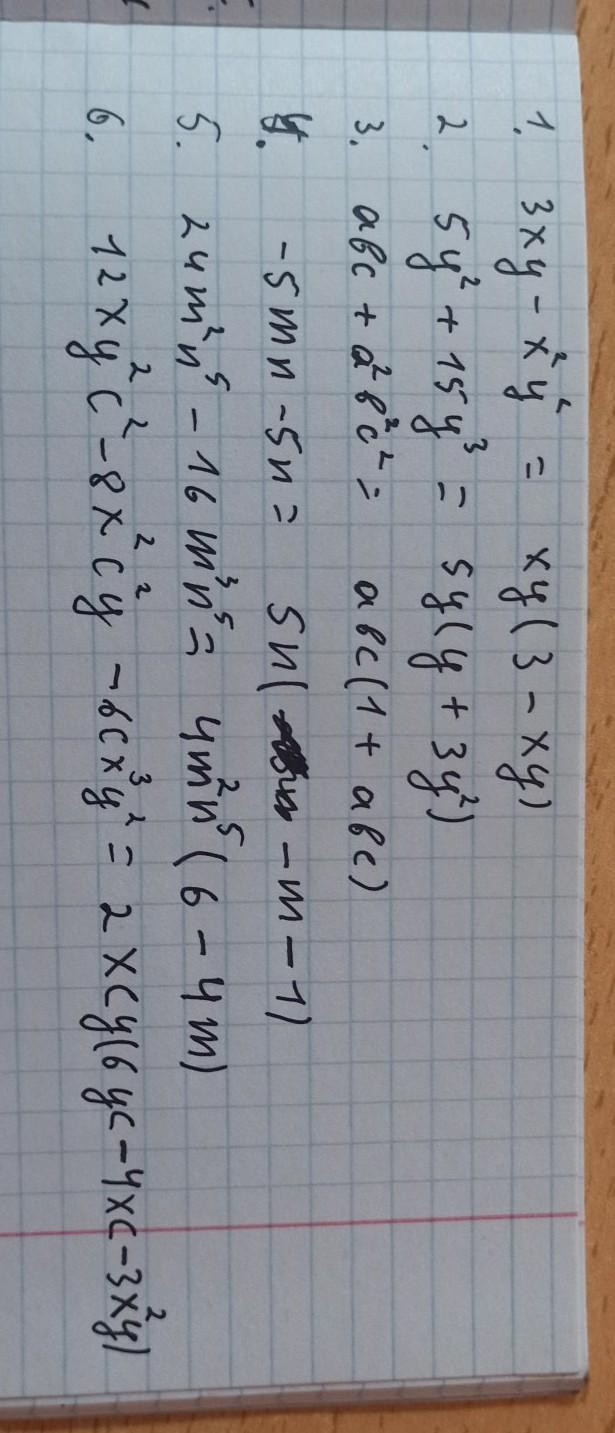 1. 3xy - x²y² = xy(3 - xy)
2. 5y² + 15y³ = 5y(y + 3y²)
3. abc + a²b²c² = abc(1 + abc)
4. -5mn - 5n = 5n( - m - 1)
5. 24m²n⁵ - 16m³n⁵ = 4m²n⁵(6 - 4m)
6. 12xy²c² - 8x²c²y - 6cx³y² = 2xcy(6yc - 4xc - 3x²y)